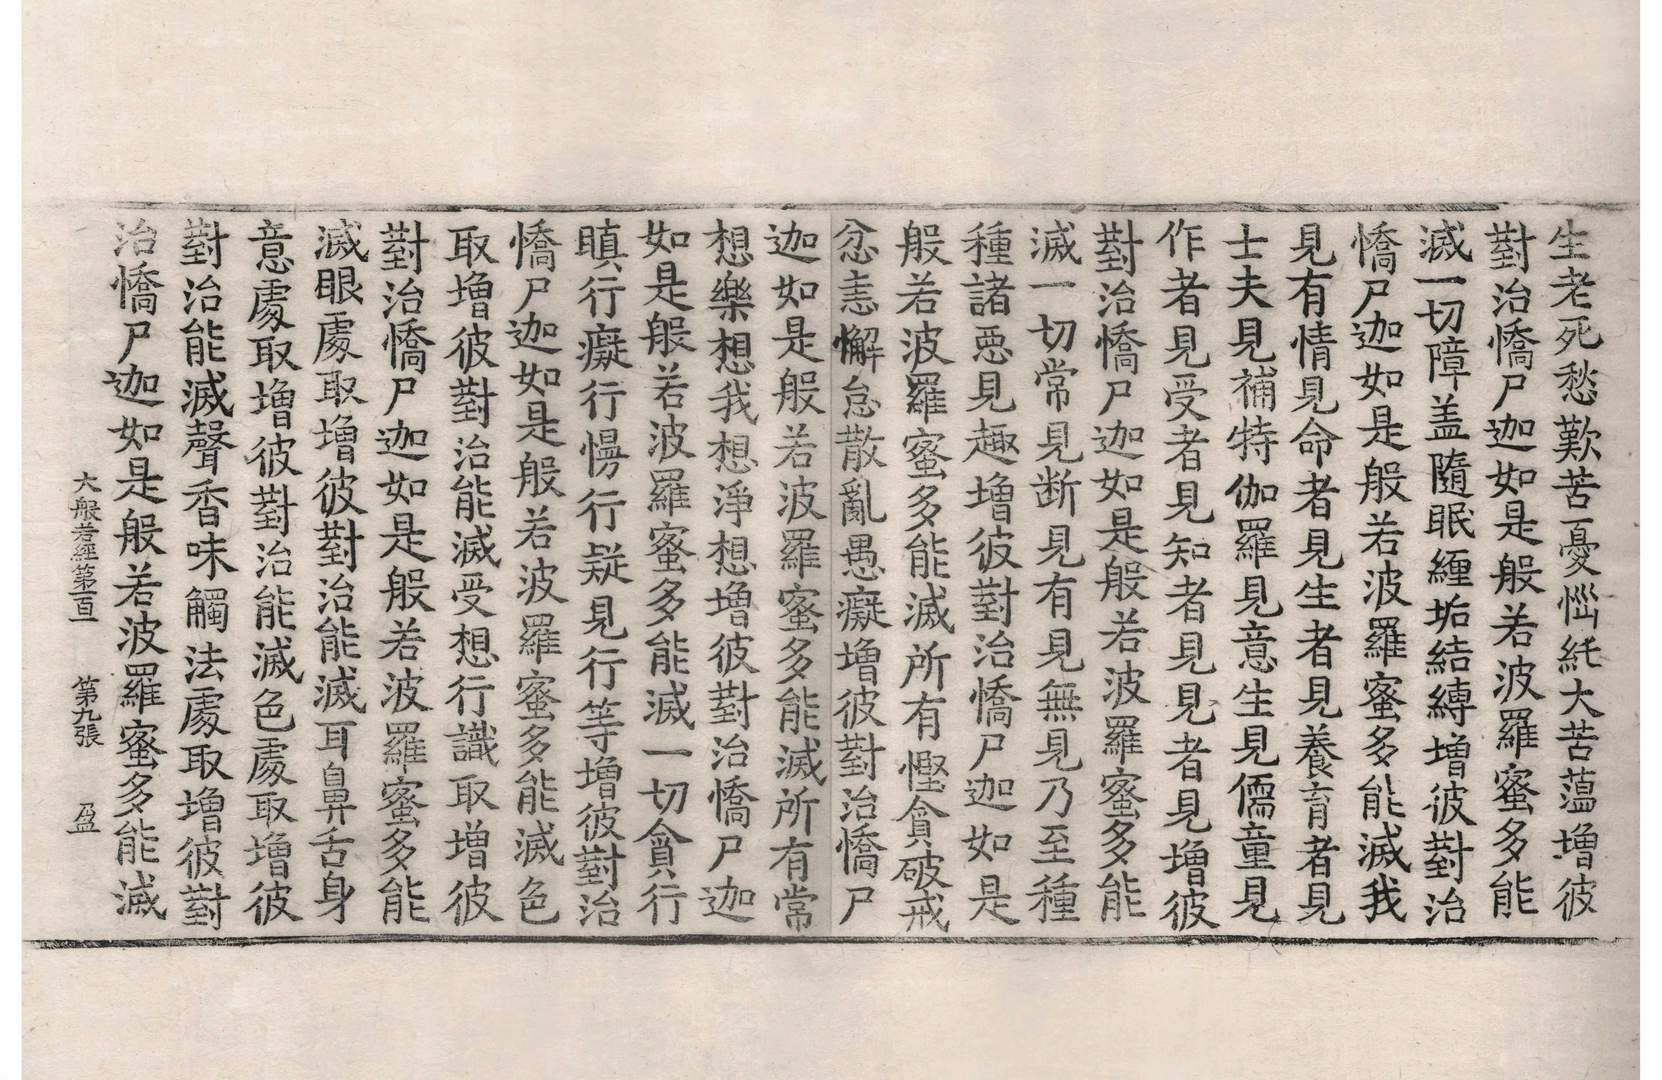 生老死愁歎苦憂惱純大苦蘊增彼
對治憍尸迦如是般若波羅蜜多能
滅一切障蓋隨眠纏垢結縛增彼對治
憍尸迦如是般若波羅蜜多能滅我
見有情見命者見生者見養育者見
士夫見補特伽羅見意生見儒童見
作者見受者見知者見見者見增彼
對治憍尸迦如是般若波羅蜜多能
滅一切常見断見有見無見乃至種
種諸惡見趣增彼對治憍尸迦如是
般若波羅蜜多能滅所有慳貪破戒
忿恚懈怠散亂愚癡增彼對治憍尸
迦如是般若波羅蜜多能滅所有常
想樂想我想淨想增彼對治憍尸迦
如是般若波羅蜜多能滅一切貪行
瞋行癡行慢行疑見行等增彼對治
憍尸迦如是般若波羅蜜多能滅色
取增彼對治能滅受想行識取增彼
對治憍尸迦如是般若波羅蜜多能
滅眼處取增彼對治能滅耳鼻舌身
意處取增彼對治能滅色處取增彼
對治能滅聲香味觸法處取增彼對
治憍尸迦如是般若波羅蜜多能滅
大般若經第一百 第九張 盈